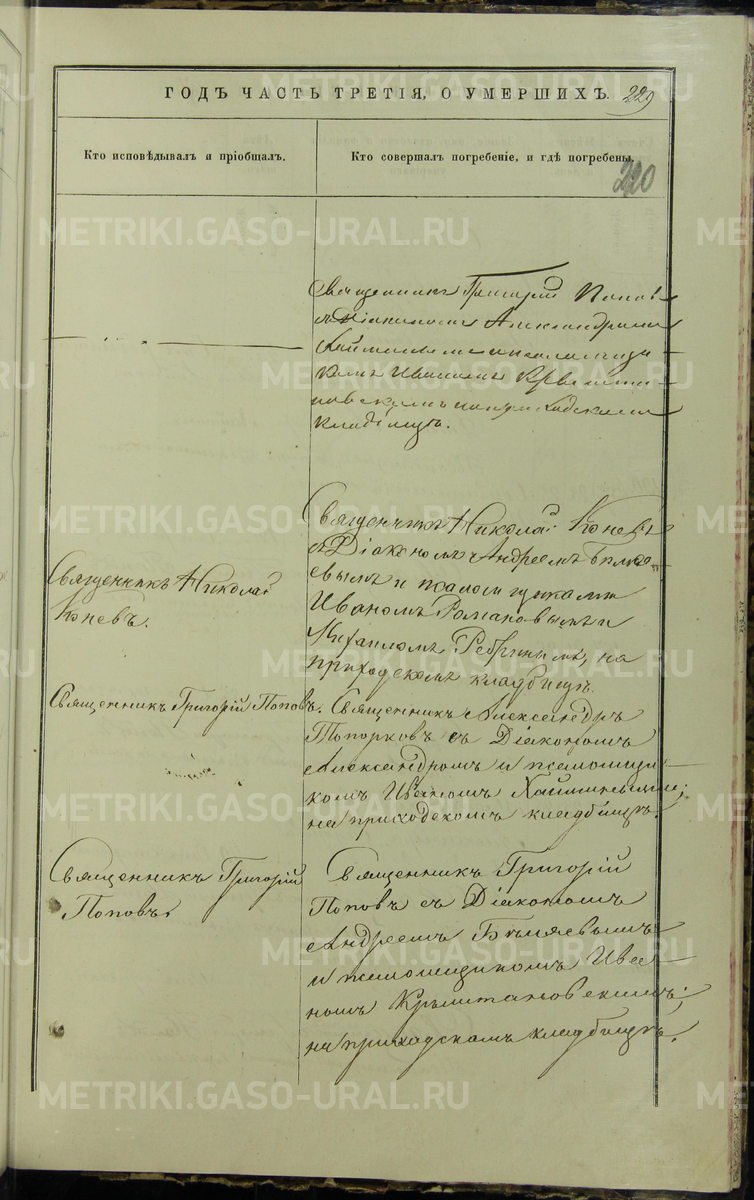 ГОДЪ ЧАСТЬ ТРЕТІЯ, О УМЕРШИХЪ. 229
Кто исповѣдывалъ и пріобщалъ.
Кто совершалъ погребеніе, и гдѣ погребены.
220
Священникъ Григорій Поповъ
съ Діакономъ Александромъ
псаломщи-
комъ Иваномъ
на приходскомъ
кладбищѣ.
Священникъ Николай
Коневъ.
Священникъ Николай Коневъ
съ Діакономъ Андреемъ Бѣля-
евымъ и псаломщиками
Иваномъ Романовымъ и
Михаиломъ Ребринымъ, на
приходскомъ кладбищѣ.
Священникъ Григорій Поповъ.
Священникъ Александръ
Топорковъ съ Діакономъ
Александромъ и псаломщи-
комъ Иваномъ Хайминовыми;
на приходскомъ кладбищѣ.
Священникъ Григорій
Поповъ.
Священникъ Григорій
Поповъ съ Діакономъ
Андреемъ Бѣляевымъ
и псаломщикомъ Ива-
номъ
на приходскомъ кладбищѣ.
METRIKI.GASO-URAL.RU